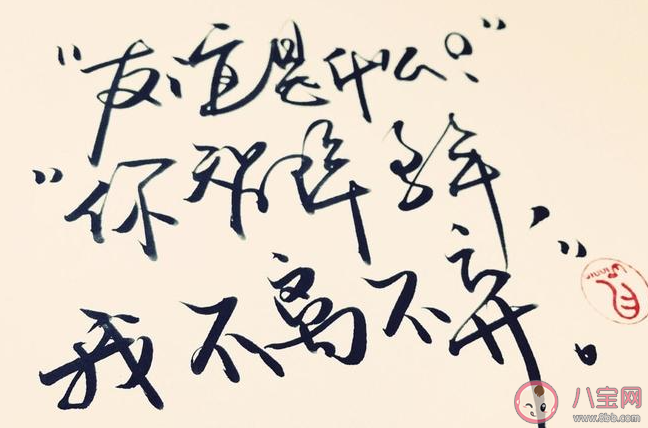 "友谊是什么?"
"你
我不离不弃。"
八宝网
www.8bb.com